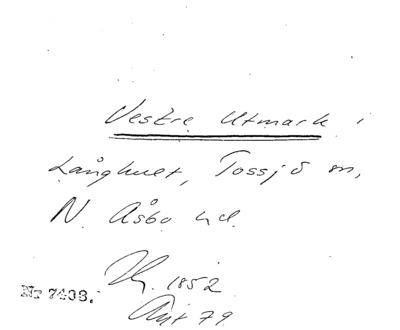 Vestre Utmark i
Långhult, Tossjö sn,
N. Åsbo hd.
1852
Nr 7408.
Aut 79.